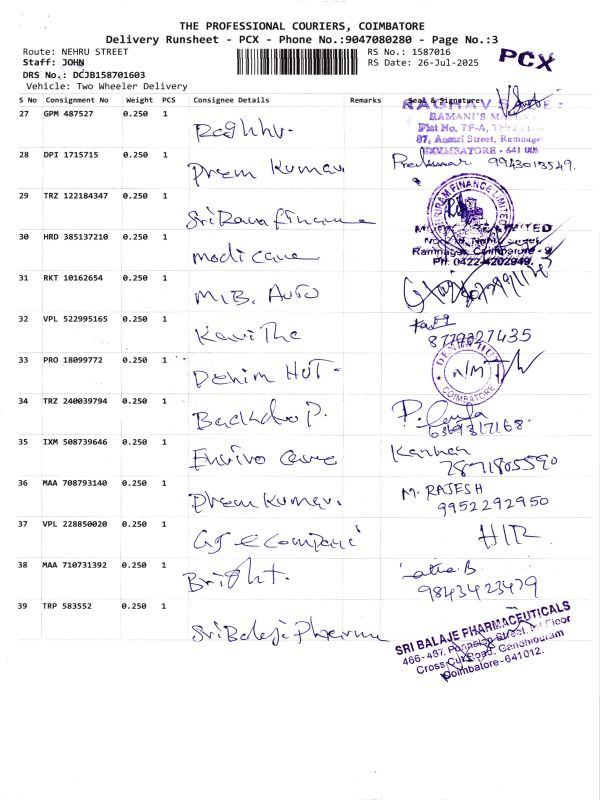 THE PROFESSIONAL COURIERS, COIMBATORE
Delivery Runsheet - PCX - Phone No.:9047080280 - Page No.:3
Route: NEHRU STREET
RS No.: 1587016
PCX
Staff: JOHN
RS Date: 26-Jul-2025
DRS No.: DCJB158701603
Vehicle: Two Wheeler Delivery
S No Consignment No Weight PCS Consignee Details Remarks Seal & Signature
27 GPM 487527 0.250 1
RAMANI'S
Flat No. TF-A,
87, Ansari Street, Ramnagar
28 DPI 1715715 0.250 1 Prem Kumar. 9943013549.
29 TRZ 122184347 0.250 1 Sri Rama finance
FINANCE LIMITED
30 HRD 385137210 0.250 1 modi care
Ramnagar, Coimbatore - 9
PH: 0422-4202949.
31 RKT 10162654 0.250 1 M.B. Auto
32 VPL 522995165 0.250 1 KaviThe
8779327435
33 PRO 18099772 0.250 1 Denim HUT.
DENIM HUT
COIMBATORE
34 TRZ 240039794 0.250 1
6369317168.
35 IXM 508739646 0.250 1 Enviro Care Kannan
2871805590
36 MAA 708793140 0.250 1 Prem Kumar. M. RAJESH
9952292950
37 VPL 228850020 0.250 1
38 MAA 710731392 0.250 1 Bright.
9843423479
39 TRP 583552 0.250 1 Sri Balaje Pharma
SRI BALAJE PHARMACEUTICALS
466-467, Ponnaian Street, Ist Floor
Cross Cut Road, Gandhipuram
Coimbatore-641012.